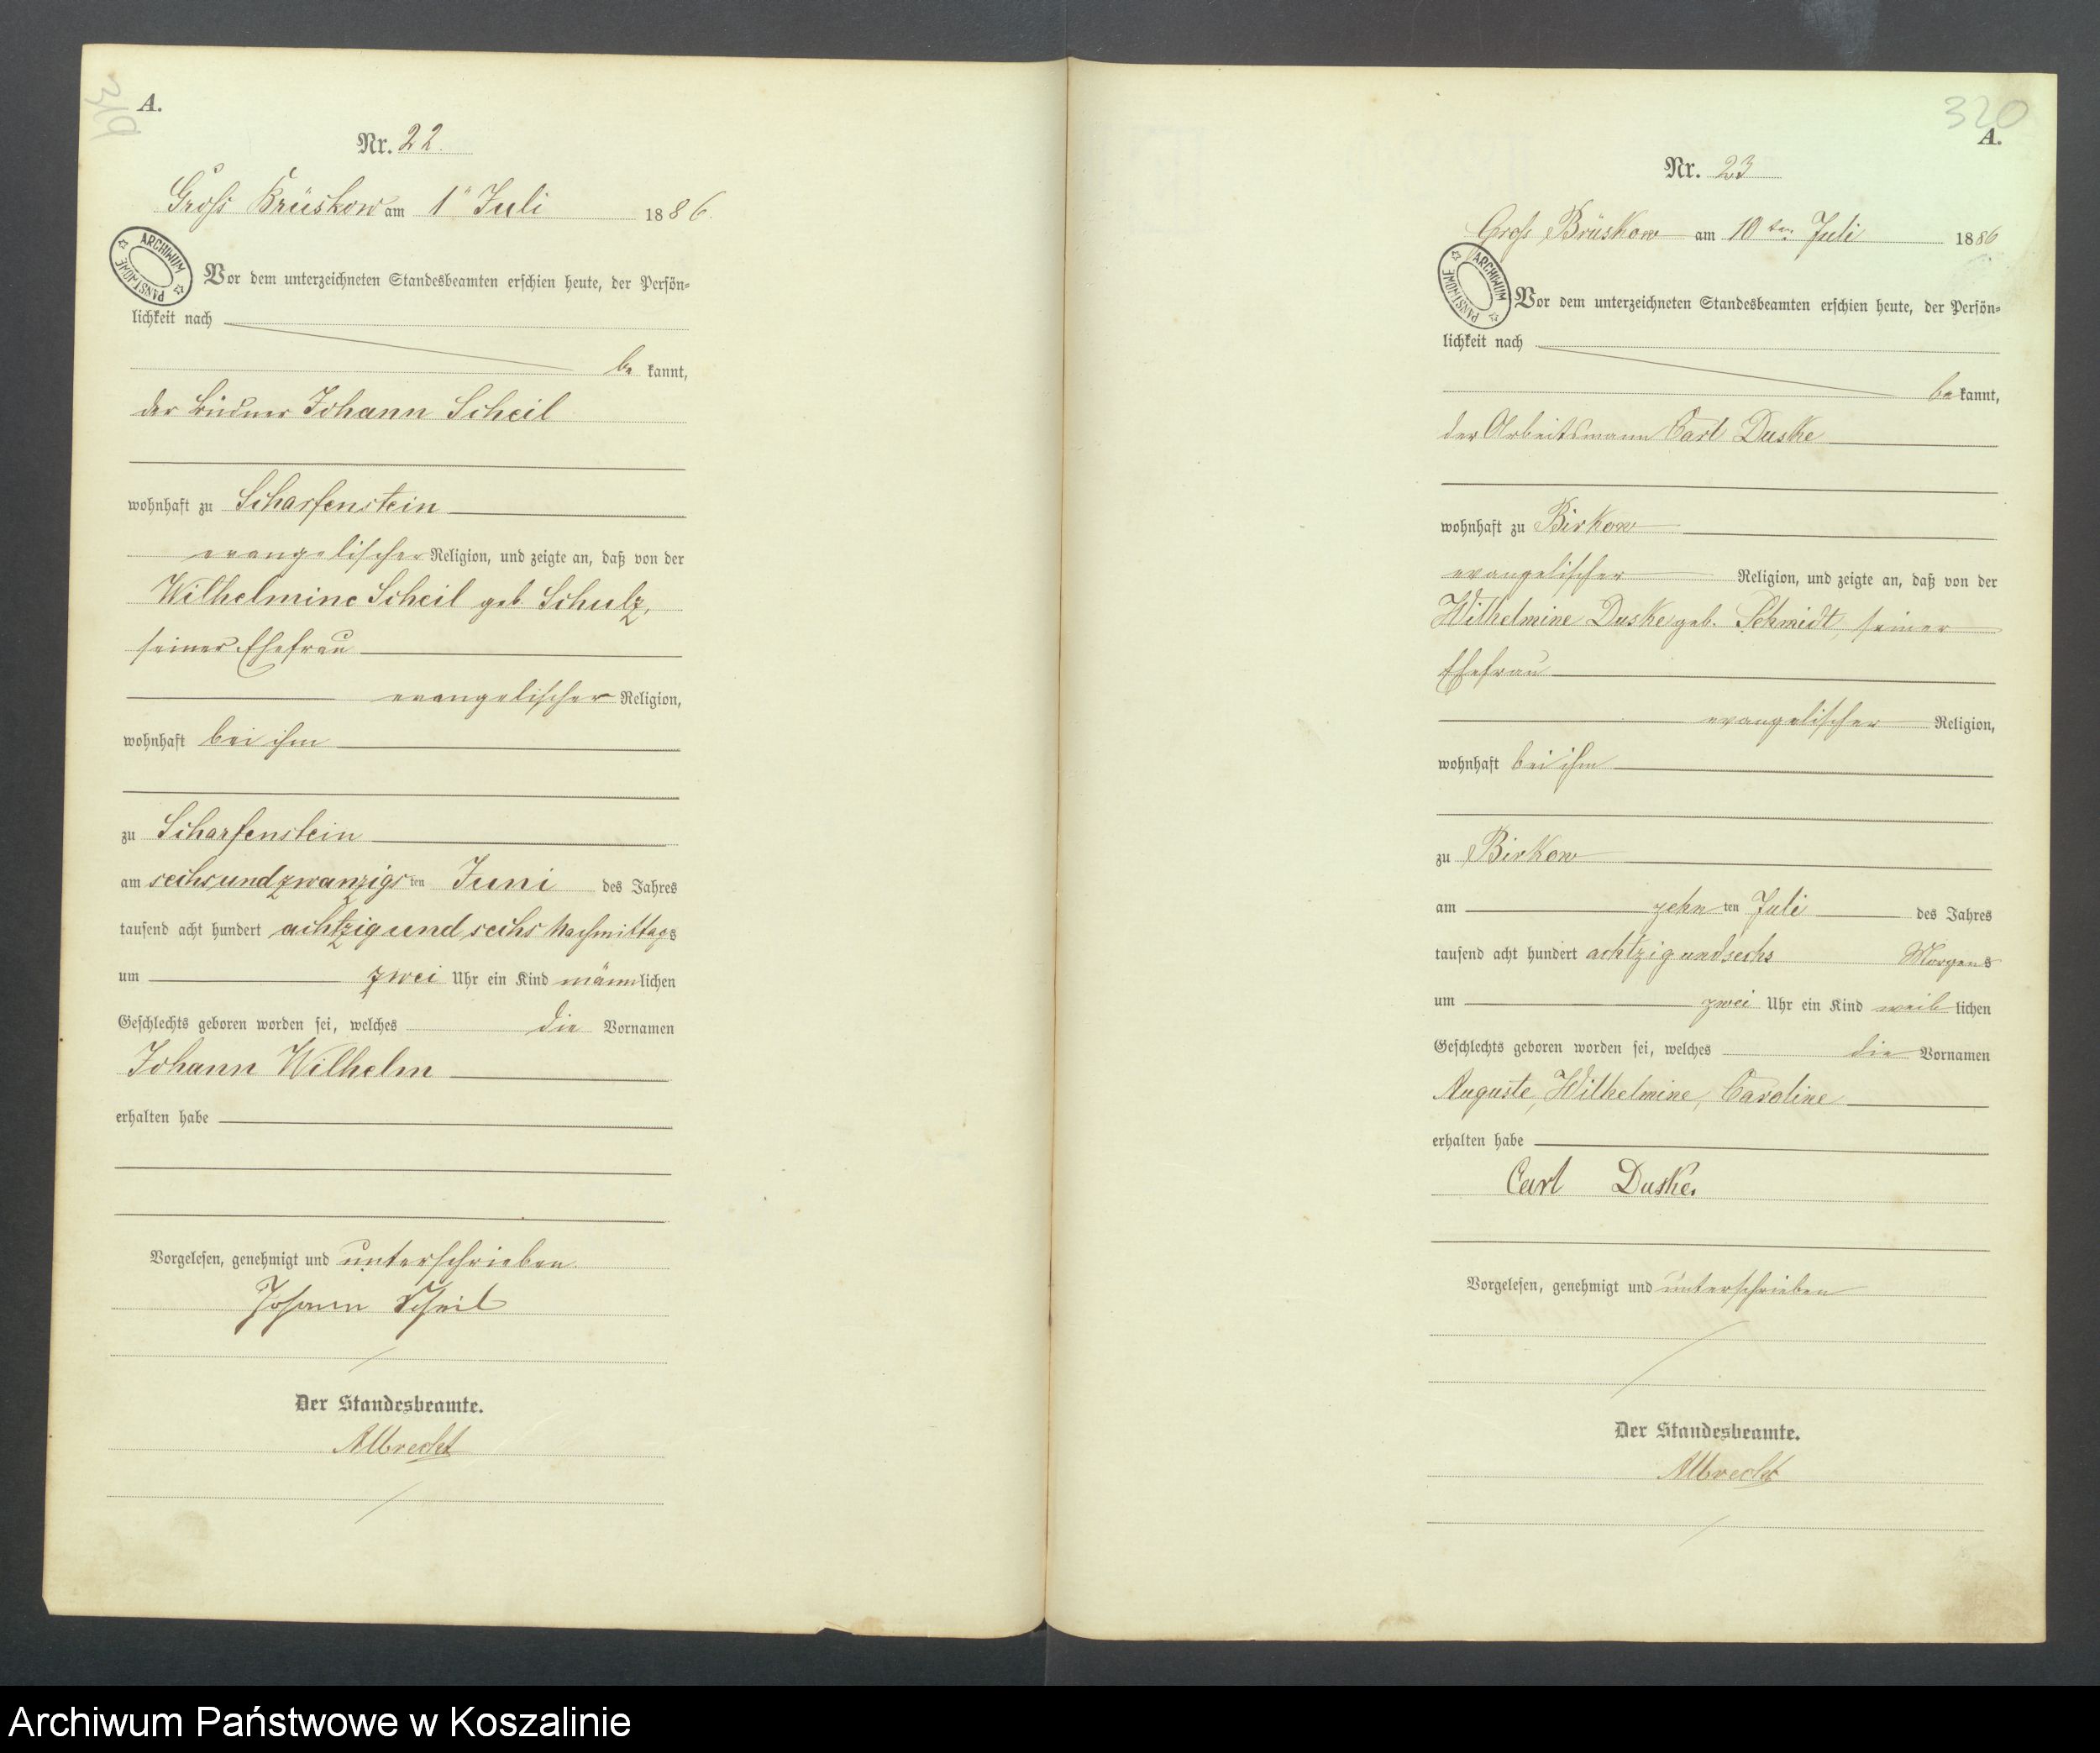 319
A.
Nr. 22.
Groß Brüskow am 1" Juli 1886.
ARCHIWUM PAŃSTWOWE
Vor dem unterzeichneten Standesbeamten erschien heute, der Persön-
lichkeit nach
be kannt,
der Büdner Johann Scheil
wohnhaft zu Scharfenstein
evangelischer Religion, und zeigte an, daß von der
Wilhelmine Scheil geb. Schulz,
seiner Ehefrau
evangelischer Religion,
wohnhaft bei ihm
zu Scharfenstein
am sechsundzwanzigs ten Juni des Jahres
tausend acht hundert achtzig und sechs Nachmittags
um zwei Uhr ein Kind männlichen
Geschlechts geboren worden sei, welches die Vornamen
Johann Wilhelm
erhalten habe
Vorgelesen, genehmigt und unterschrieben
Johann Scheil
Der Standesbeamte.
Albrecht
320
A.
Nr. 23
Groß Brüskow am 10ten Juli 1886
ARCHIWUM PAŃSTWOWE
Vor dem unterzeichneten Standesbeamten erschien heute, der Persön-
lichkeit nach
be kannt,
der Arbeitsmann Carl Duske
wohnhaft zu Birkow
evangelischer Religion, und zeigte an, daß von der
Wilhelmine Duske geb. Schmidt, seiner
Ehefrau
evangelischer Religion,
wohnhaft bei ihm
zu Birkow
am zehn ten Juli des Jahres
tausend acht hundert achtzig und sechs Morgens
um zwei Uhr ein Kind weib lichen
Geschlechts geboren worden sei, welches die Vornamen
Auguste, Wilhelmine, Caroline
erhalten habe
Carl Duske.
Vorgelesen, genehmigt und unterschrieben
Der Standesbeamte.
Albrecht
Archiwum Państwowe w Koszalinie